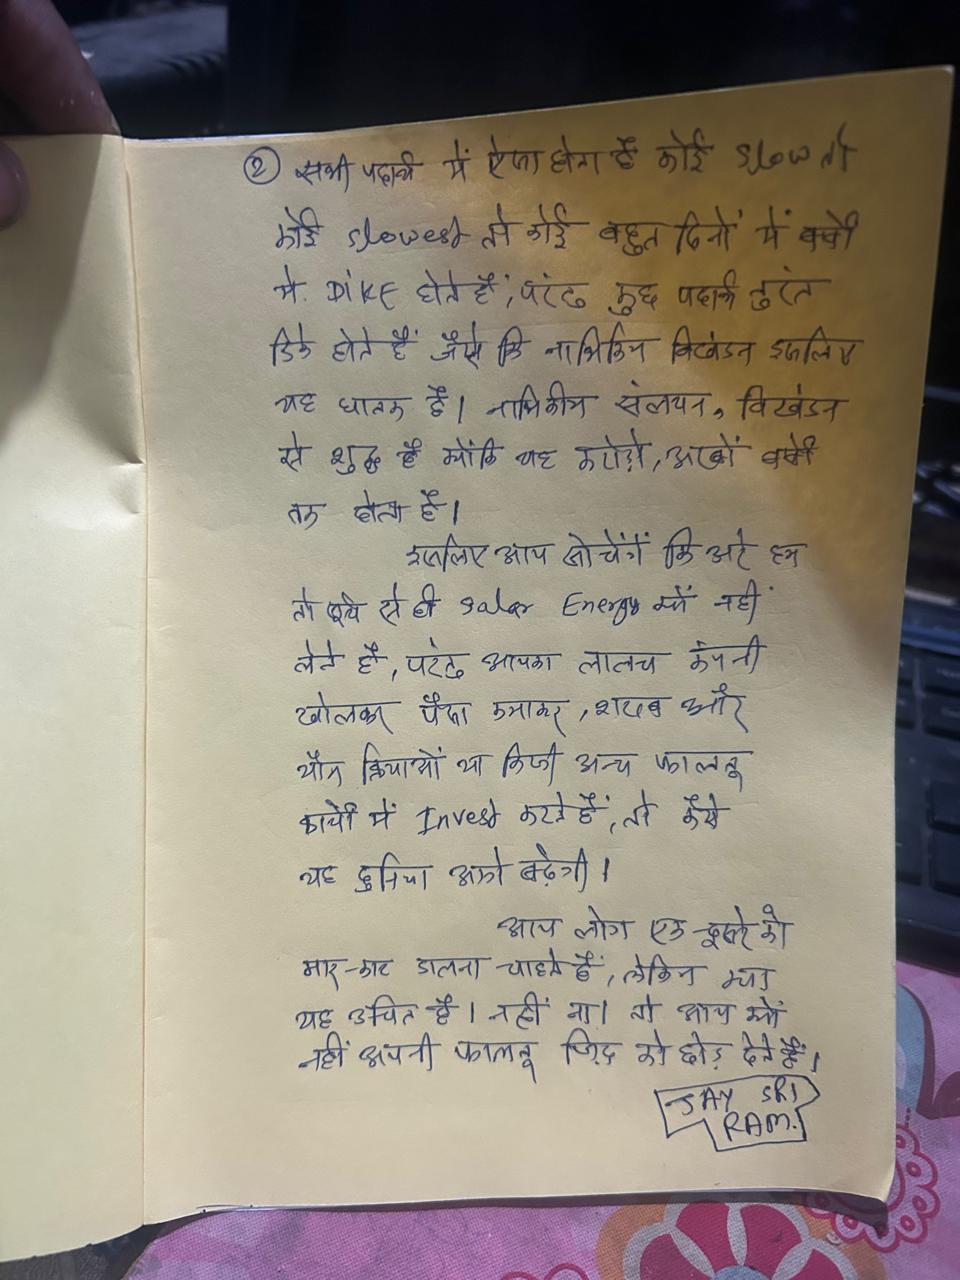 ② सभी पदार्थ में ऐसा होता है कोई slow तो
कोई slowest तो कोई बहुत दिनों में वर्षों
में DiKE होते हैं, परंतु कुछ पदार्थ तुरंत
डिके होते हैं जैसे कि नाभिकिय विखंडन इसलिए
यह घातक है। नाभिकीय संलयन, विखंडन
से शुद्ध है क्योंकि यह करोड़ो, अरबों वर्षो
तक होता है।
इसलिए आप सोचेंगें कि अरे हम
तो सूर्य से ही Solar Energy क्यों नहीं
लेते है, परंतु आपका लालच कंपनी
खोलकर पैसा कमाकर, शराब और
यौन क्रियाओं या किसी अन्य फालतू
कार्यो में Invest करते हैं, तो कैसे
यह दुनिया आगे बढ़ेगी।
आप लोग एक-दूसरे को
मार-काट डालना चाहते हैं, लेकिन क्या
यह उचित है। नहीं ना। तो आप क्यों
नहीं अपनी फालतू जिद़ को छोड़ देते हैं।
JAY SRI
RAM.